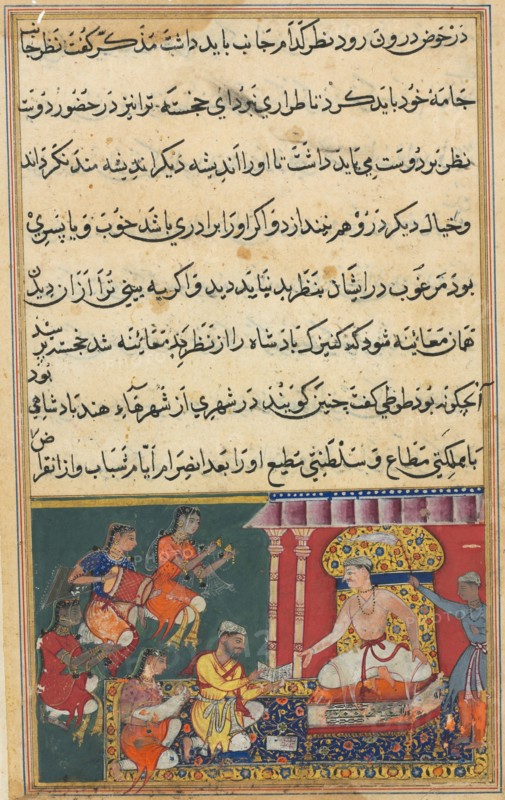 در حوض درون رود نظر کدام جانب باید داشت مذکر گفت نظر جانب
جامه خود باید کرد تا طراری نبرد ای خجسته ترا نیز در حضور دوست
نظر بر دوست می باید داشت تا او را اندیشه دیگر اندیشه مند نکرداند
و خیال دیگر در وهم نیندازد و اکر او را برادری باشد خوب و یا پسری
بود مرغوب در ایشان بنظر بد نباید دید و اکر به بینی ترا از ان دیدن
همان معاینه شود که کنیزک پادشاه را از نظر بد معاینه شد خجسته پرسید
آنچکونه بود طوطی کفت چنین کویند در شهری از شهرهاء هند پادشاهی بود
با مملکتی مطاع و سلطنتی مطیع او را بعد انصرام ایام شباب و از انقراض